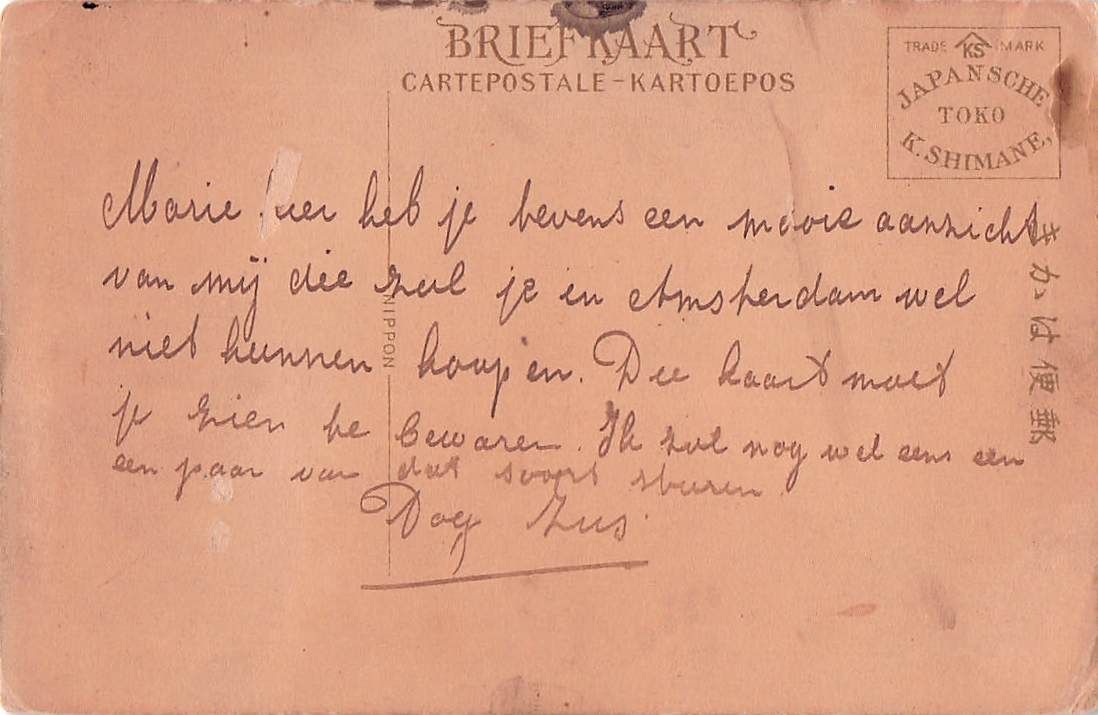 BRIEFKAART
CARTEPOSTALE-KARTOEPOS
TRADE KS MARK
JAPANSCHE
TOKO
K. SHIMANE,
Marie hier heb je tevens een mooie aanzicht
van mij die zul je in Amsterdam wel
niet kunnen koopen. Die kaart moet
je zien te bewaren. Ik zul nog wel eens een
een paar van dat soort sturen.
Dag Zus.
NIPPON
郵便はかき